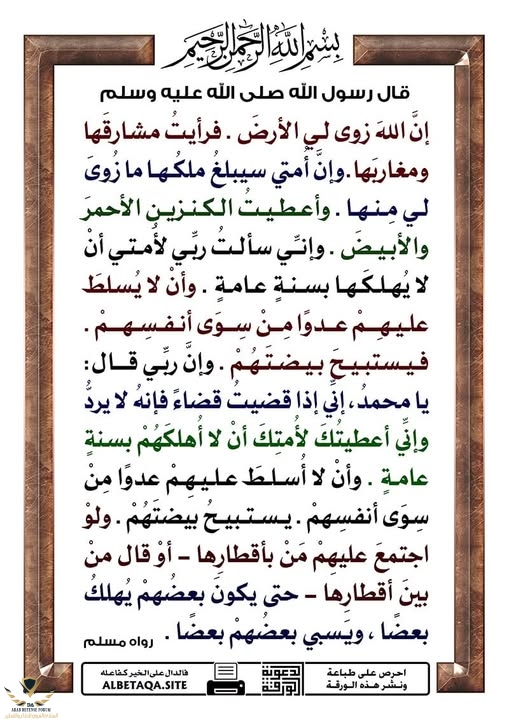 بسم الله الرحمن الرحيم
قال رسول الله صلى الله عليه وسلم
إنَّ اللهَ زوى لي الأرضَ . فرأيتُ مشارقَها
ومغاربَها.وإنَّ أُمتي سيبلغُ ملكُها ما زوىَ
لي مِنها . وأعطيتُ الكنزينِ الأحمرَ
والأبيضَ . وإنِّي سألتُ ربِّي لأُمتي أنْ
لا يُهلكَها بسنةٍ عامةٍ . وأنْ لا يُسلطَ
عليهِمْ عدوًا مِنْ سِوَى أنفسِهِمْ .
فيستبيحَ بيضتَهُمْ . وإنَّ ربِّي قال:
يا محمدُ ، إنِّي إذا قضيتُ قضاءً فإنهُ لا يردُّ
وإنِّي أعطيتُكَ لأُمتِكَ أنْ لا أُهلكَهُمْ بسنةٍ
عامةٍ . وأنْ لا أُسلطَ عليهِمْ عدوًا مِنْ
سِوَى أنفسِهِمْ . يستبيحُ بيضتَهُمْ . ولو
اجتمعَ عليهِمْ مَنْ بأقطارِها - أوْ قال منْ
بينَ أقطارِها - حتى يكونَ بعضُهمْ يُهلكُ
بعضًا ، ويَسبي بعضُهمْ بعضًا .
رواه مسلم
احرص على طباعة
ونشر هذه الورقة
الدعوية
الورقة
فالدال على الخير كفاعله
ALBETAQA.SITE
ARAB DEFENSE FORUM